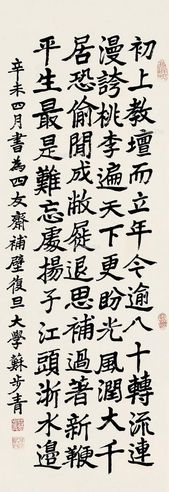 初上教壇而立年今逾八十轉流連
漫誇桃李遍天下更盼光風潤大千
居恐偷閒成敝屣退思補過著新鞭
平生最是難忘處揚子江頭浙水邊
辛未四月書為四女齋補壁復旦大學蘇步青